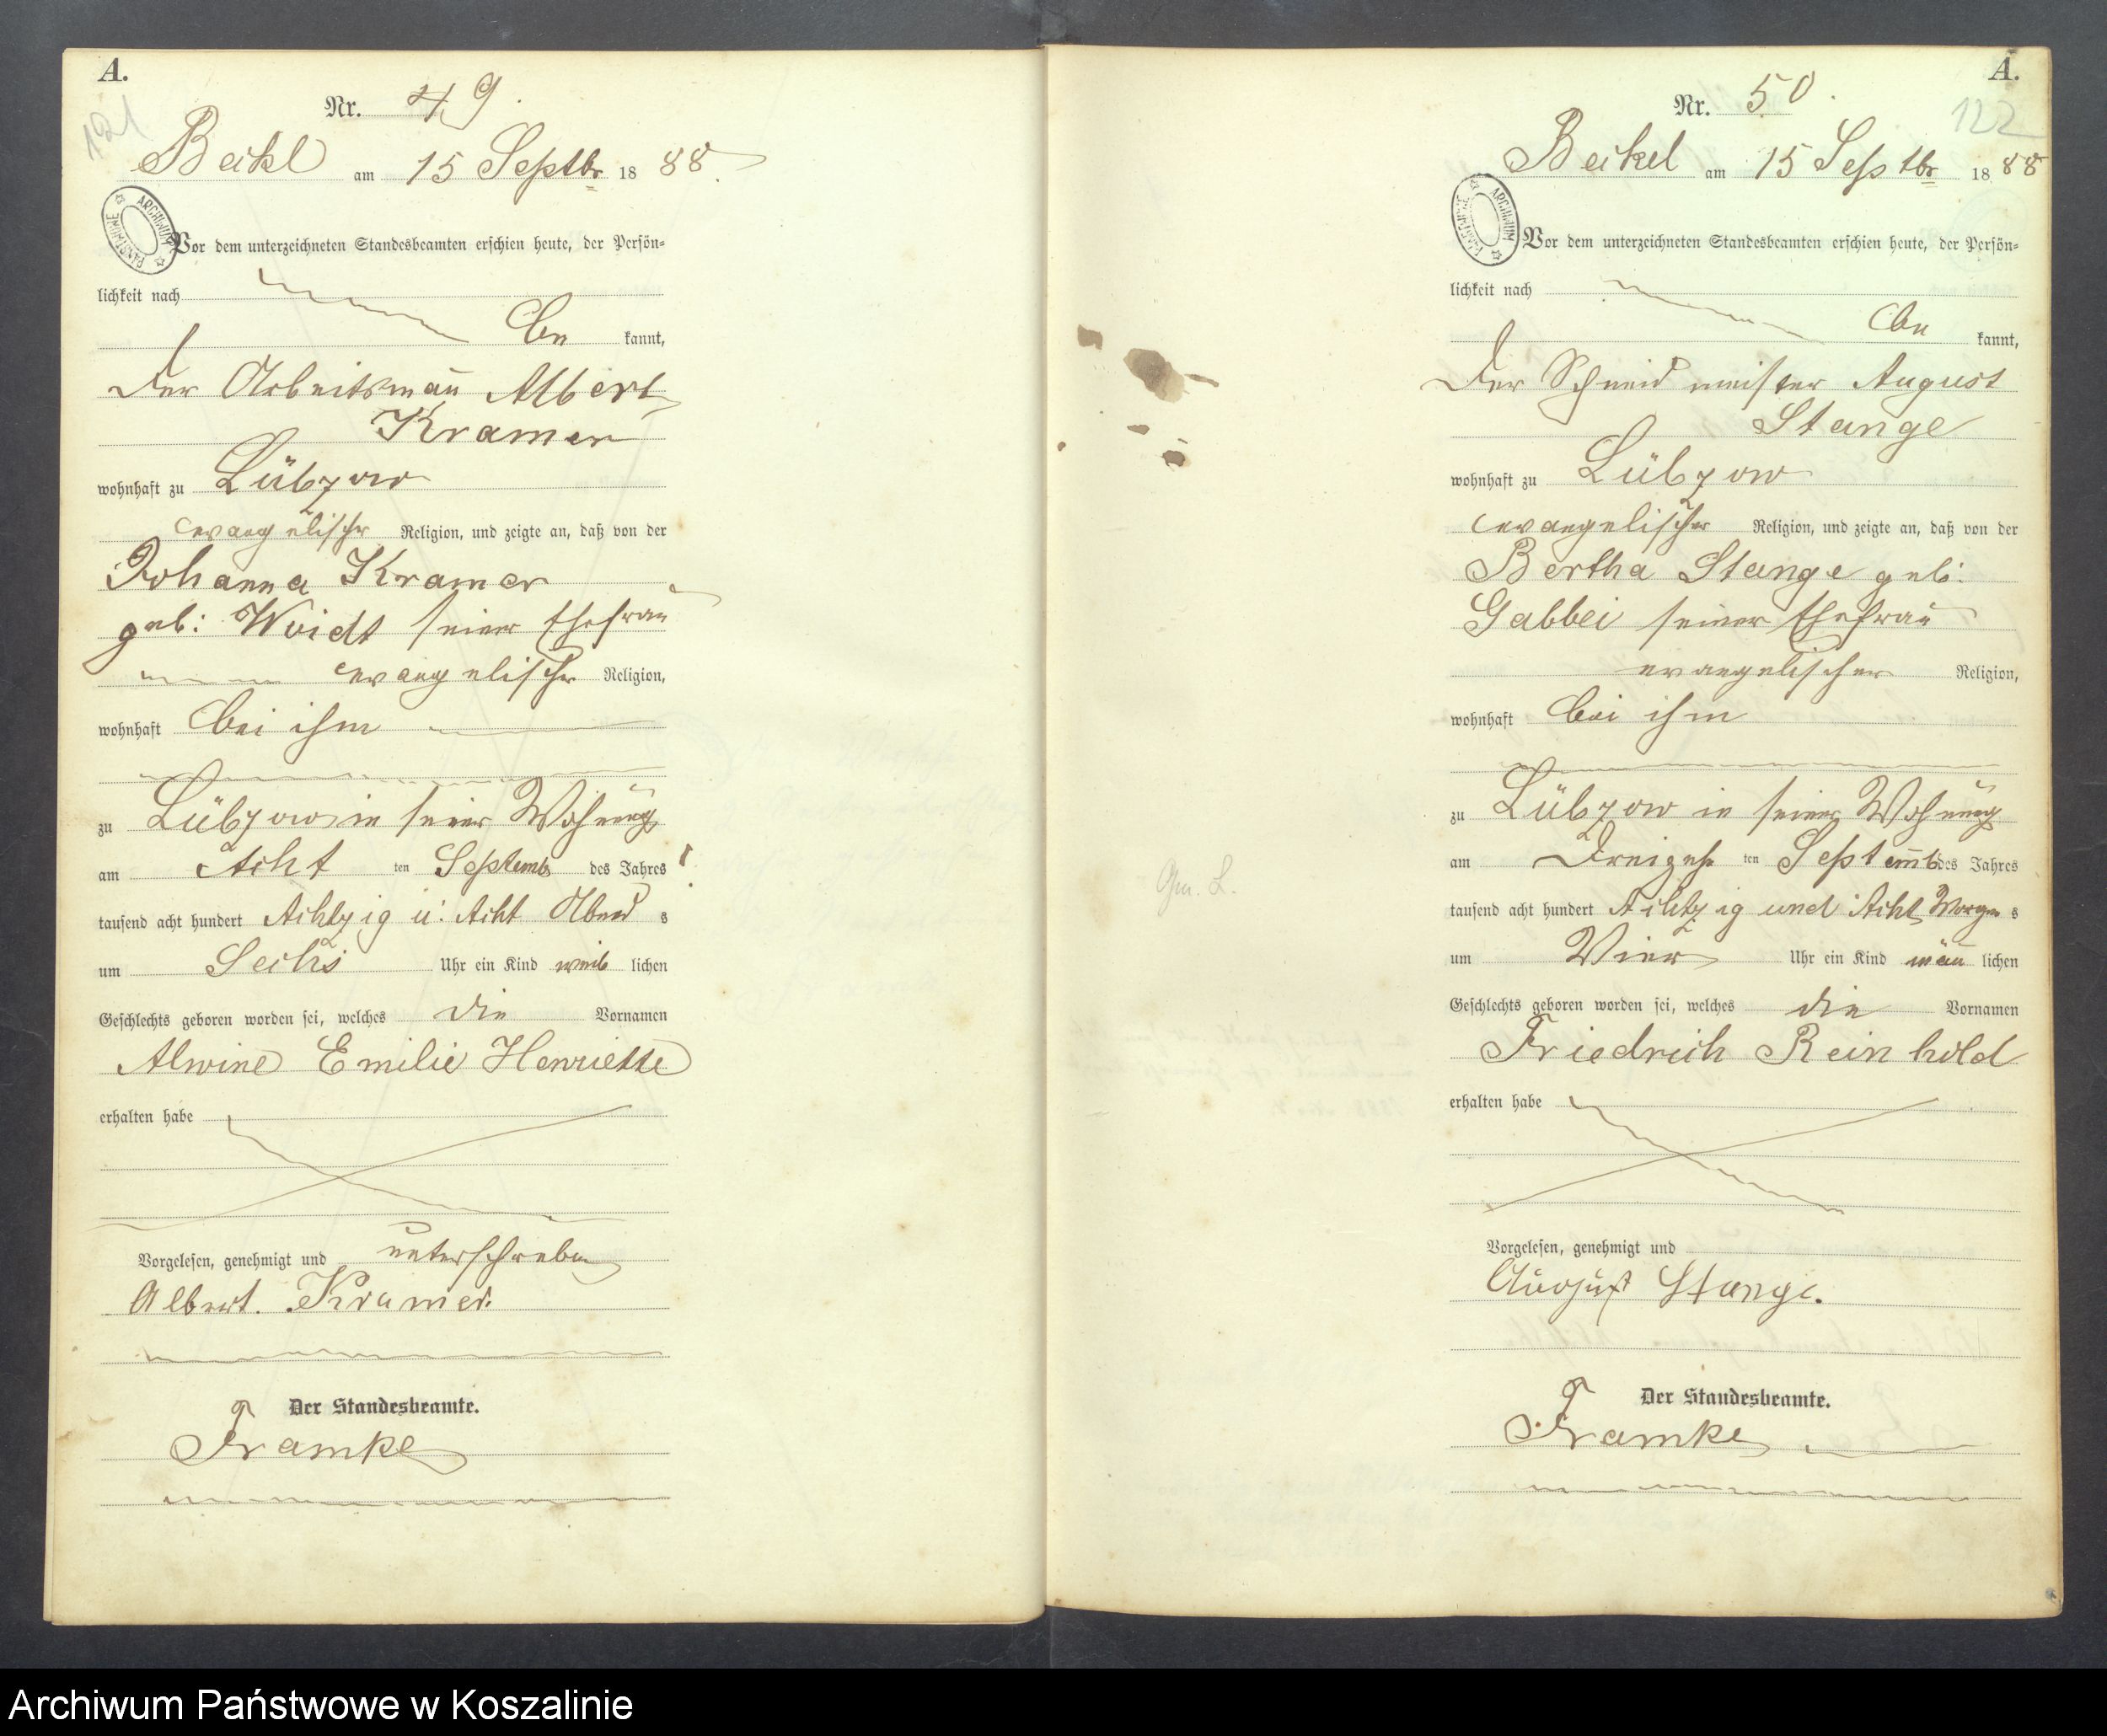 A.
121
Nr. 49.
Beikl am 15 Septbr 1888.
ARCHIWUM PAŃSTWOWE
Vor dem unterzeichneten Standesbeamten erschien heute, der Persön=
lichkeit nach
be kannt,
der Arbeitsmañ Albert
Kramer
wohnhaft zu Lübzow
evangelischer Religion, und zeigte an, daß von der
Johanna Kramer
geb: Woidt seiner Ehefrau
evangelischer Religion,
wohnhaft bei ihm
zu Lübzow in seiner Wohnung
am Acht ten Septemb des Jahres
tausend acht hundert Achtzig u: Acht Abend s
um Sechs Uhr ein Kind weib lichen
Geschlechts geboren worden sei, welches die Vornamen
Alwine Emilie Henriette
erhalten habe
Vorgelesen, genehmigt und unterschrieben
Albert. Kramer.
Der Standesbeamte.
Framke
A.
122
Nr. 50.
Beikel am 15 Septbr 1888
ARCHIWUM PAŃSTWOWE
Vor dem unterzeichneten Standesbeamten erschien heute, der Persön=
lichkeit nach
be kannt,
der Schneidmeister August
Stange
wohnhaft zu Lübzow
evangelischer Religion, und zeigte an, daß von der
Bertha Stange geb:
Gabbei seiner Ehefrau
evangelischer Religion,
wohnhaft bei ihm
zu Lübzow in seiner Wohnung
am Dreizehn ten Septemb des Jahres
tausend acht hundert Achtzig und Acht Morgen s
um Vier Uhr ein Kind mäñ lichen
Geschlechts geboren worden sei, welches die Vornamen
Friedrich Reinhold
erhalten habe
Vorgelesen, genehmigt und
August Stange.
Der Standesbeamte.
Framke
Archiwum Państwowe w Koszalinie